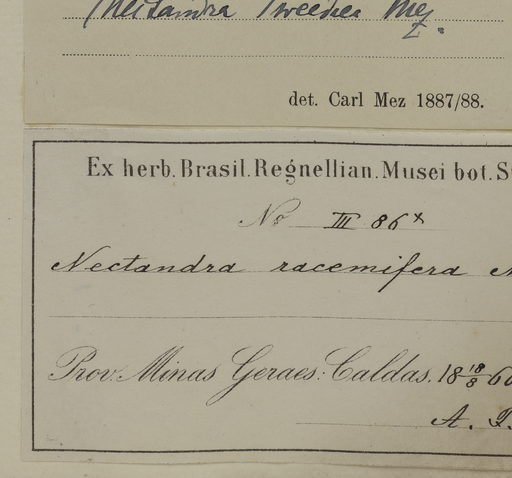 Nectandra Tweediei Mez.
det. Carl Mez 1887/88.
Ex herb. Brasil. Regnellian. Musei bot. S
No III 86x
Nectandra racemifera
Prov. Minas Geraes: Caldas. 18 18/8 60
A.